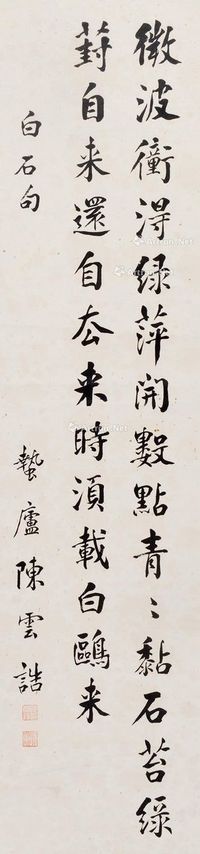 微波衝淂緑萍開數點青〻黏石苔緑
葑自来還自去来時湏載白鷗来
白石句
蟄廬陳雲誥